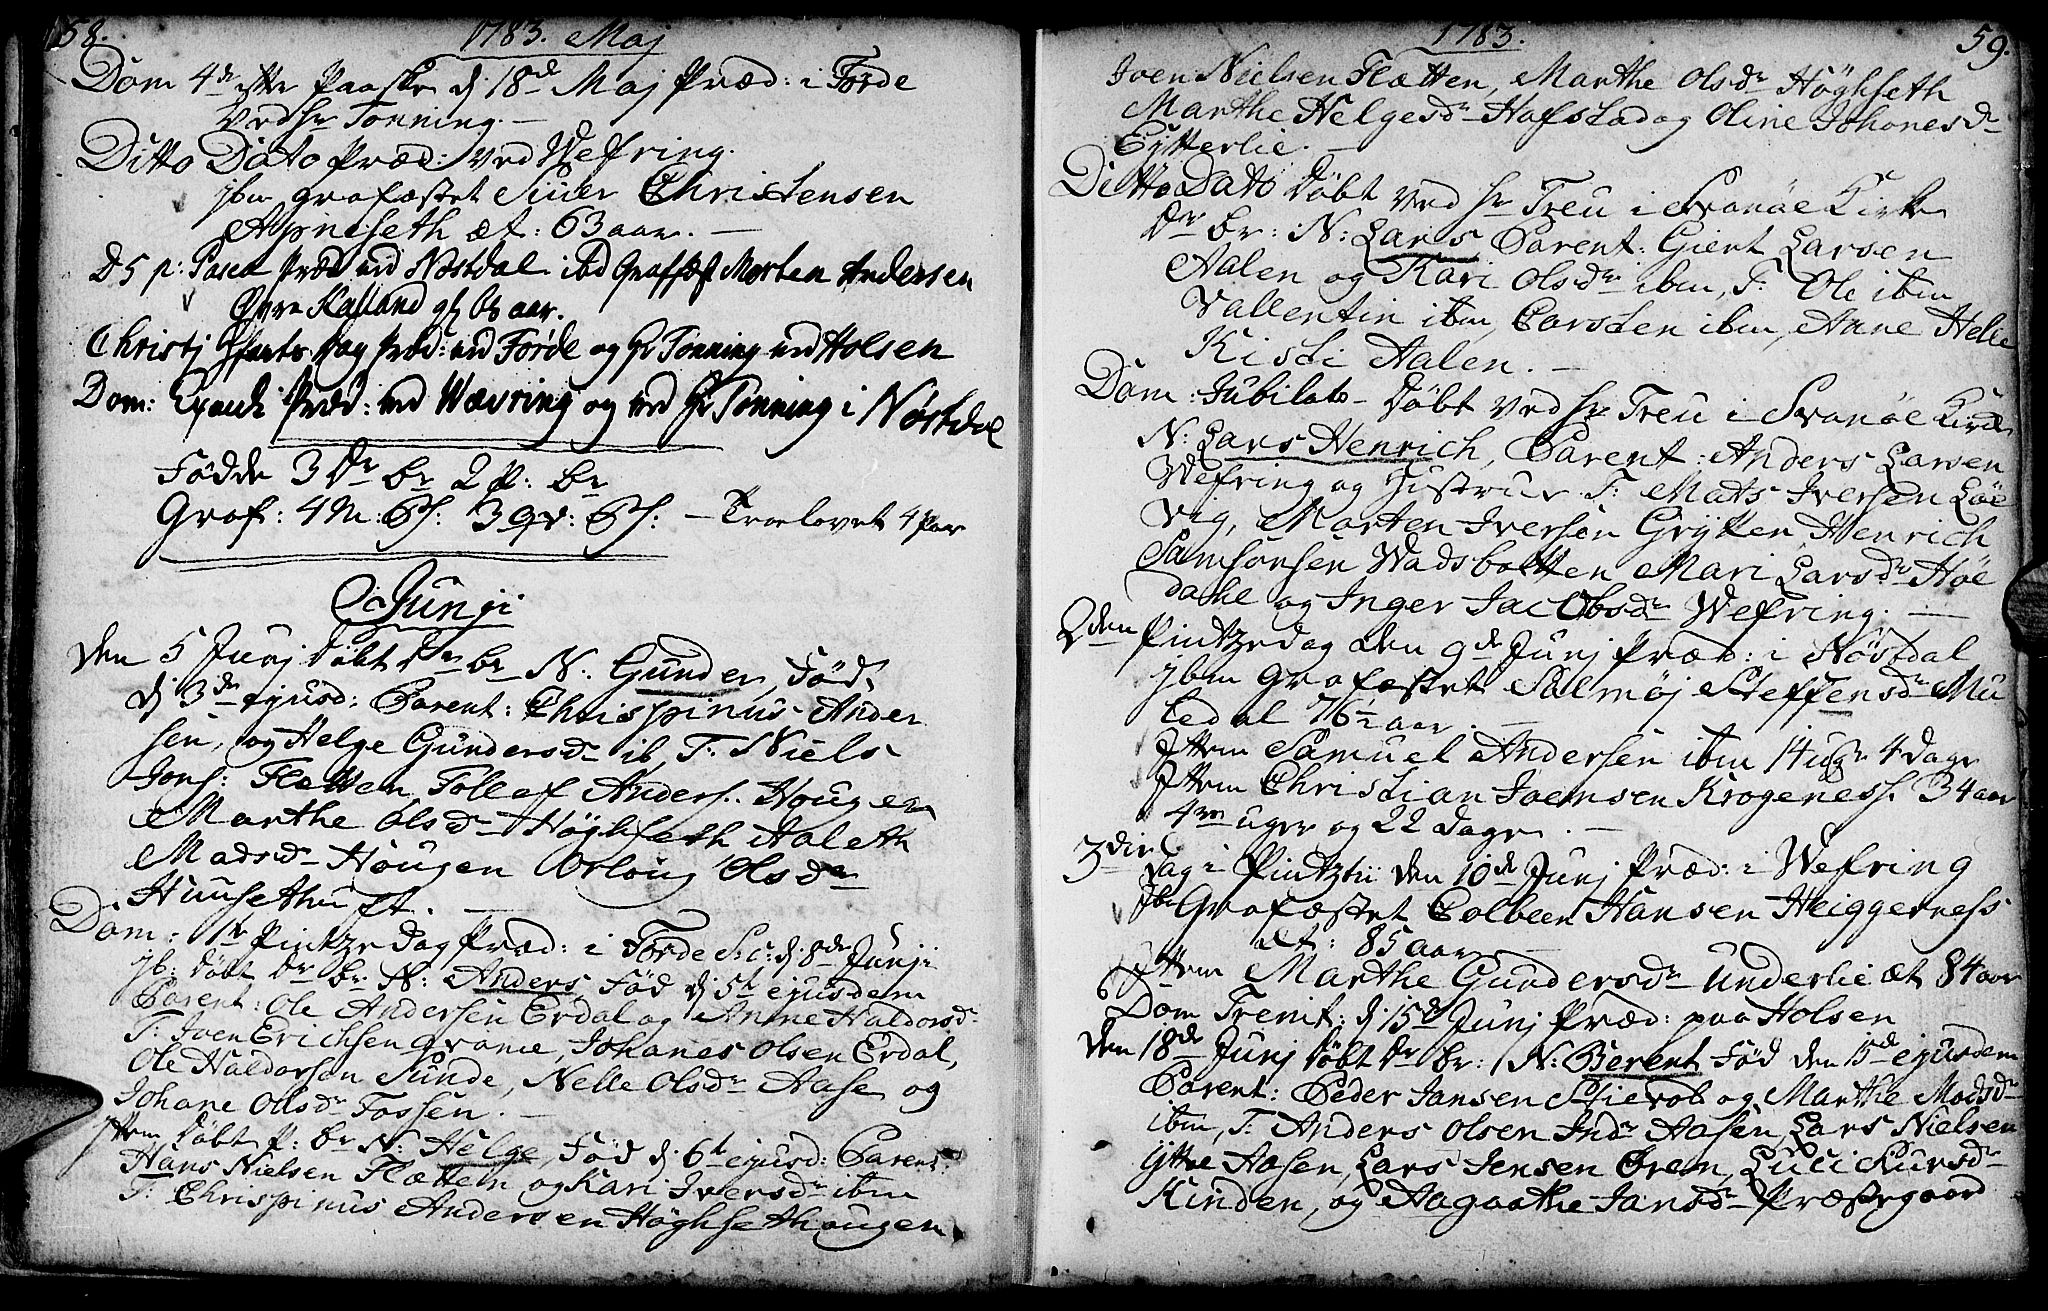 58.
1783. Maj
Dom 4de efter Paaske d. 18de Maj Præd: i Førde
ved hr Tonning. —
Ditto Dato Præd: ved Wefring.
ibm grafæstet Siuer Christensen
æt: 63 aar. —
D 5 p: Pasca Præd ved Nøstdal ibd Graffæst Morten Andersen
Øvre Kalland gl 68 aar.
Christj Præd: ved Førde og hr Tonning ved Holsen
Dom: Exaudi Præd: ved Wævring og ved hr Tonning i Nøstdal
Fødde 3 Dr br 2 P: br
Graf: 4 M: Ps. 3 Qv: Ps: — Troelovet 4 Par
Junji
den 5 Junj Døbt Dr br N: Gunder, Fød
d 3de ejusd: Parent: Chrispinus Ander
sen, og Helge Gundersdr ib, T: Niels
Jons: Fletten Tollef Anders. Hougen
Marthe Olsdr Høghseth Aaleth
Madsdr Hougen Olsdr
Huusethuft. —
Dom: 1te Pintzedag Præd: i Førde S:c: d. 8de Junji
ib: Døbt Dr br N: Anders Fød d 5te ejusdem
Parent: Ole Andersen Erdal og Anne Haldorsdr
T: Iven Erichsen Johanes Olsen Erdal,
Ole Haldorsen Sunde, Nelle Olsdr Aase og
Johane Olsdr Fossen. —
Item Døbt P: br N: Helge, Fød d 6te ejusd: Parent:
Hans Nielsen Flætten og Kari Iversdr ibm
T: Chrispinus Andersen Høghsethougen
1783.
59.
Iven Nielsen Flætten, Marthe Olsdr Høghseth
Marthe Helgesdr Hafstad og Oline Johanesdr
Eytterlie. —
Ditto Dato Døbt ved hr Treu i Svanøe Kirke
Dr br: N: Lars Parent: Giert Larsen
Aalen og Kari Olsdr ibm, T: Ole ibm
Vallentin ibm, Carsten ibm, Anne Helle
Kisti Aalen. —
Dom: Jubilate Døbt ved hr Treu i Svanøe Kirke
N: Lars Henrich, Parent: Anders Larsen
Wefring og Hustrue T: Mats Iversen Løe
vig, Marten Iversen Grytten, Henrich
Samsonsen Wadsbotten Mari Larsdr Høe
dahl og Inger Jacobsdr Wefring. —
2den Pintzedag den 9de Junj Præd: i Nøstdal
ibm Grafæstet Salmøj Steffensdr Mu
ledal 76 aar. —
Item Samuel Andersen ibm 14 ugr 4 Dage
Item Christian Krogeness. 34 aar
4re uger og 22 Dage. —
3die
Dag i Pintze den 10de Junj Præd: i Wefring
ib: Grafæstet Colbeen Hansen Heiggerness
æt: 85 aar —
Item Marthe Gundersdr Underlie æt 84 aar
Dom Trenit: d. 15de Junj Præd: paa Holsen
den 18de Junj Døbt Dr br: N: Berent Fød den 15de ejusdem
Parent: Peder Jansen og Marthe Madsdr
ibm, T: Anders Olsen Indr Aasen, Lars Nielsen
Yttre Aasen, Lars Jensen Ørem, Luci
Kinden, og Aagaathe Jansdr Præstegaard